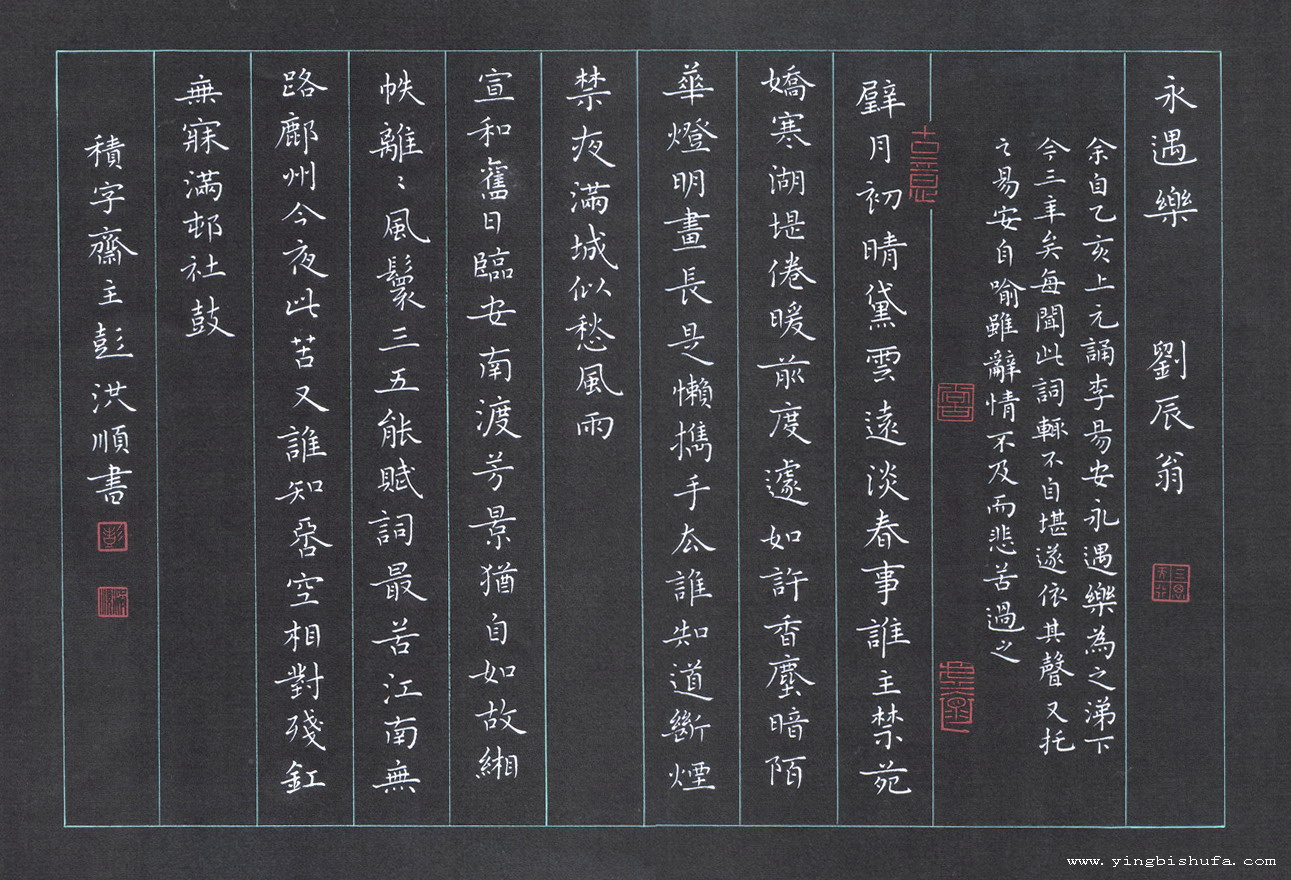 永遇樂 劉辰翁
余自乙亥上元誦李易安永遇樂為之涕下
今三年矣每聞此詞輒不自堪遂依其聲又托
之易安自喻雖辭情不及而悲苦過之
璧月初晴黛雲遠淡春事誰主禁苑
嬌寒湖堤倦暖前度遽如許香塵暗陌
華燈明畫長是懶攜手去誰知道斷煙
禁夜滿城似愁風雨
宣和舊日臨安南渡芳景猶自如故緗
帙離〻風鬟三五能賦詞最苦江南無
路鄜州今夜此苦又誰知否空相對殘釭
無寐滿邨社鼓
積字齋主彭洪順書
古意
彭
www.yingbishufa.com